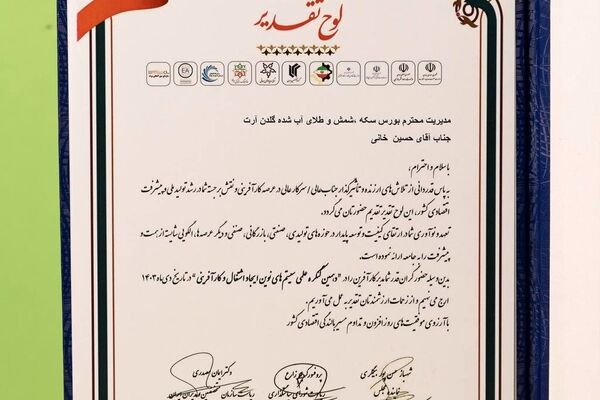 لوح تقدیر
مدیریت محترم بورس سکه ،شمش و طلای آب شده گلدن آرت
جناب آقای حسین خانی
باسلام و احترام ،
به پاس قدردانی از تلاش‌های ارزنده و تاثیرگذار جنابعالی / سرکار عالی در عرصه کارآفرینی و نقش برجسته شما در رشد تولید ملی و پیشرفت
اقتصادی کشور، این لوح تقدیر تقدیم حضورتان می‌گردد.
تعهد و نوآوری شما در ارتقای کیفیت و توسعه پایدار در حوزه‌های تولیدی، صنعتی، بازرگانی، صنفی و دیگر عرصه‌ها، الگویی شایسته از همت و
پیشرفت را به جامعه ارائه نموده است.
بدین وسیله حضور گران قدر شما مدیر کارآفرین را در "دهمین کنگره علمی سیستم‌های نوین ایجاد اشتغال و کارآفرینی" در تاریخ دی ماه ۱۴۰۳
ارج می نهیم و از زحمات ارزشمندتان تقدیر به عمل می‌آوریم.
با آرزوی موفقیت‌های روزافزون و تداوم مسیر بالندگی اقتصادی کشور